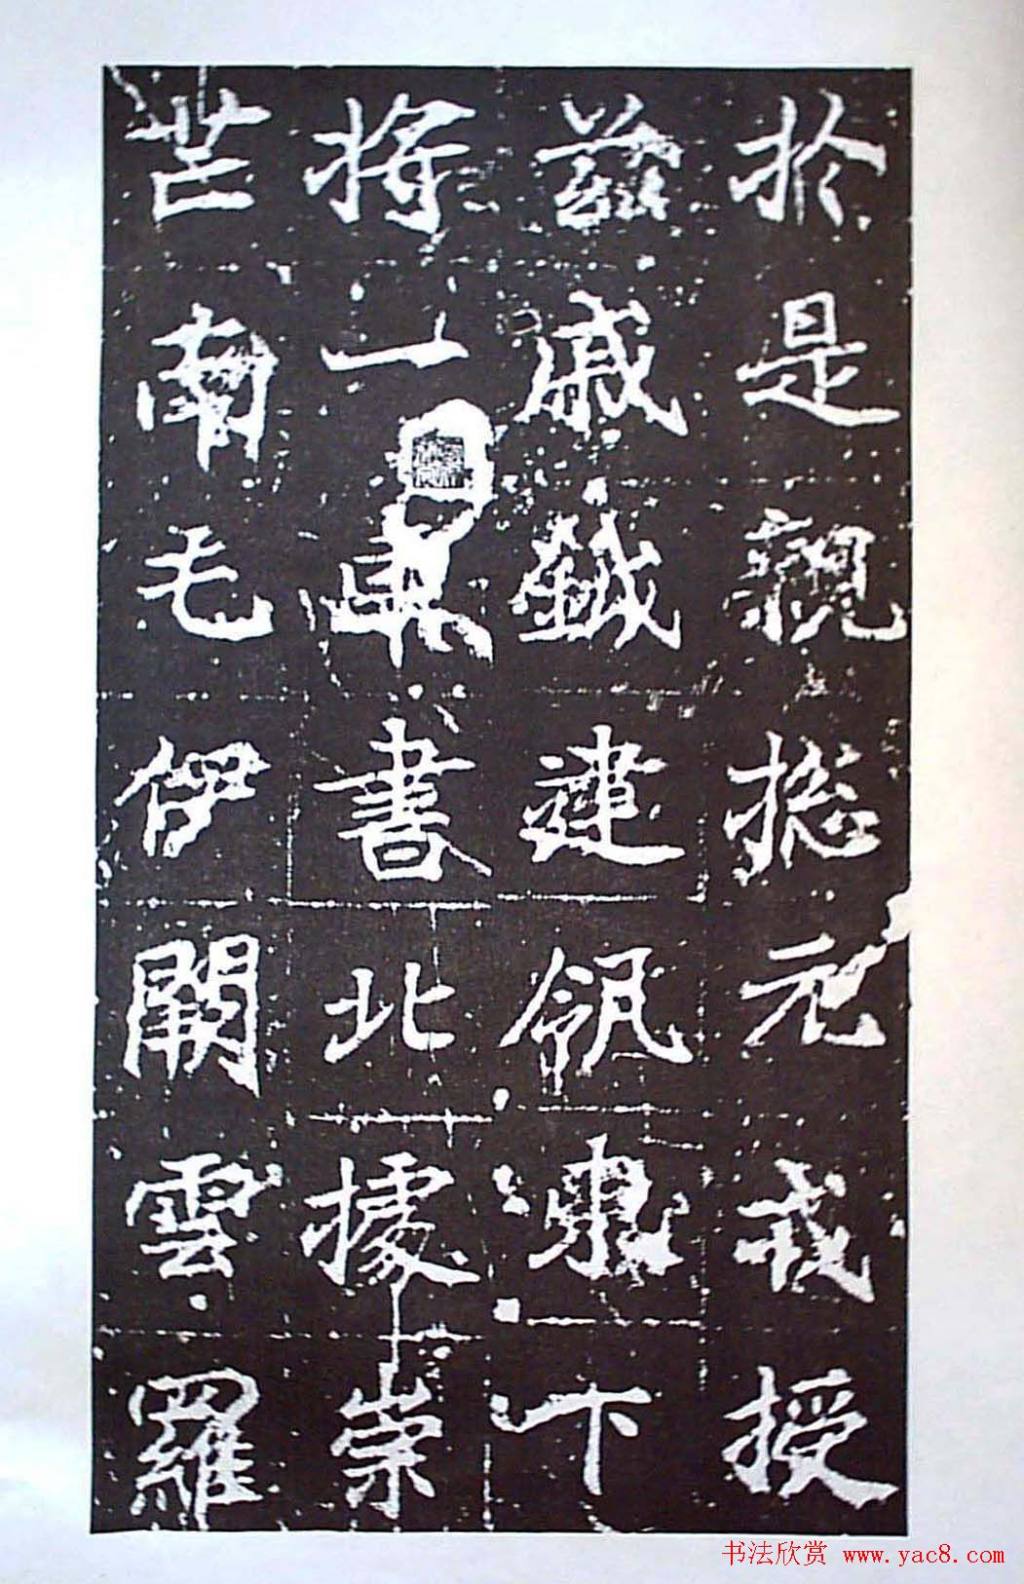 於是親揔元戎授
茲戚鉞建瓴東下
將一車書北據崇
芒南屯伊闕雲羅
书法欣赏 www.yac8.com